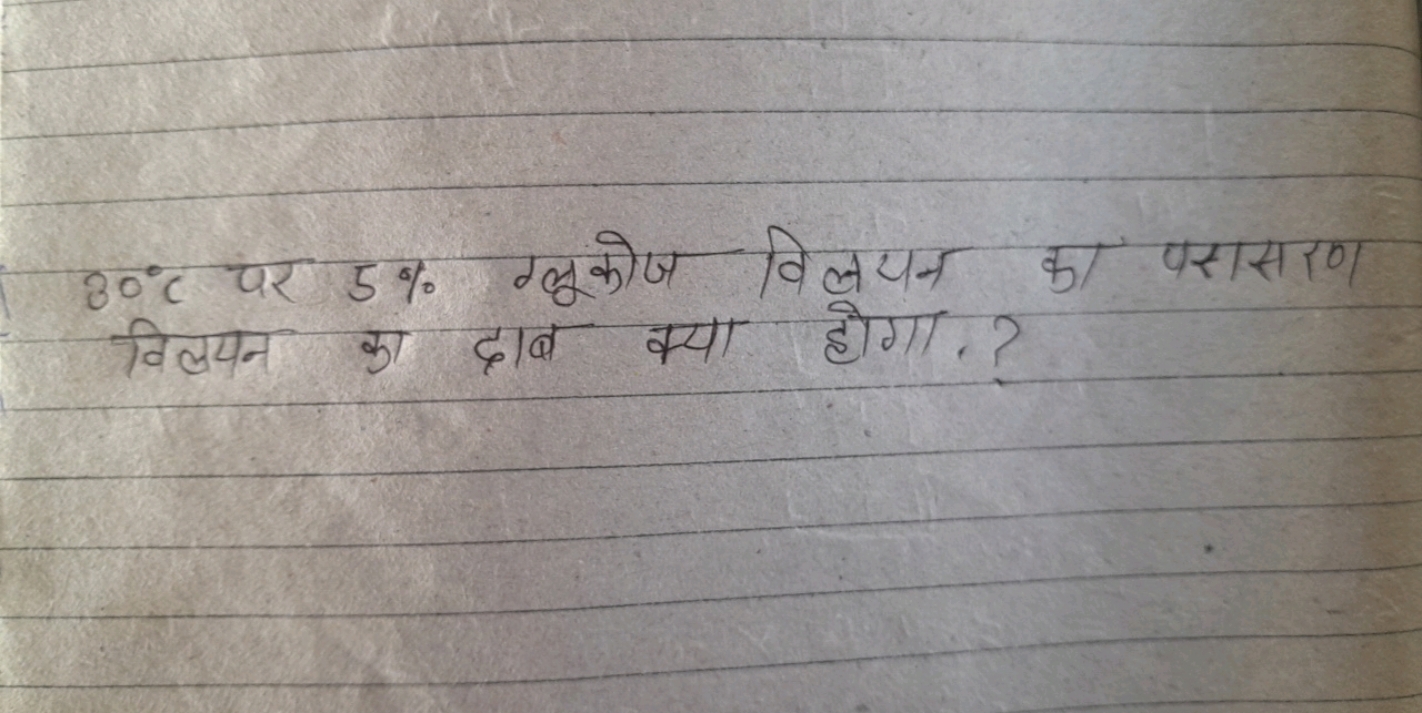 30°C पर 5% ग्लूकोज विलयन का परासरण
विलयन का दाब क्या होगा.?